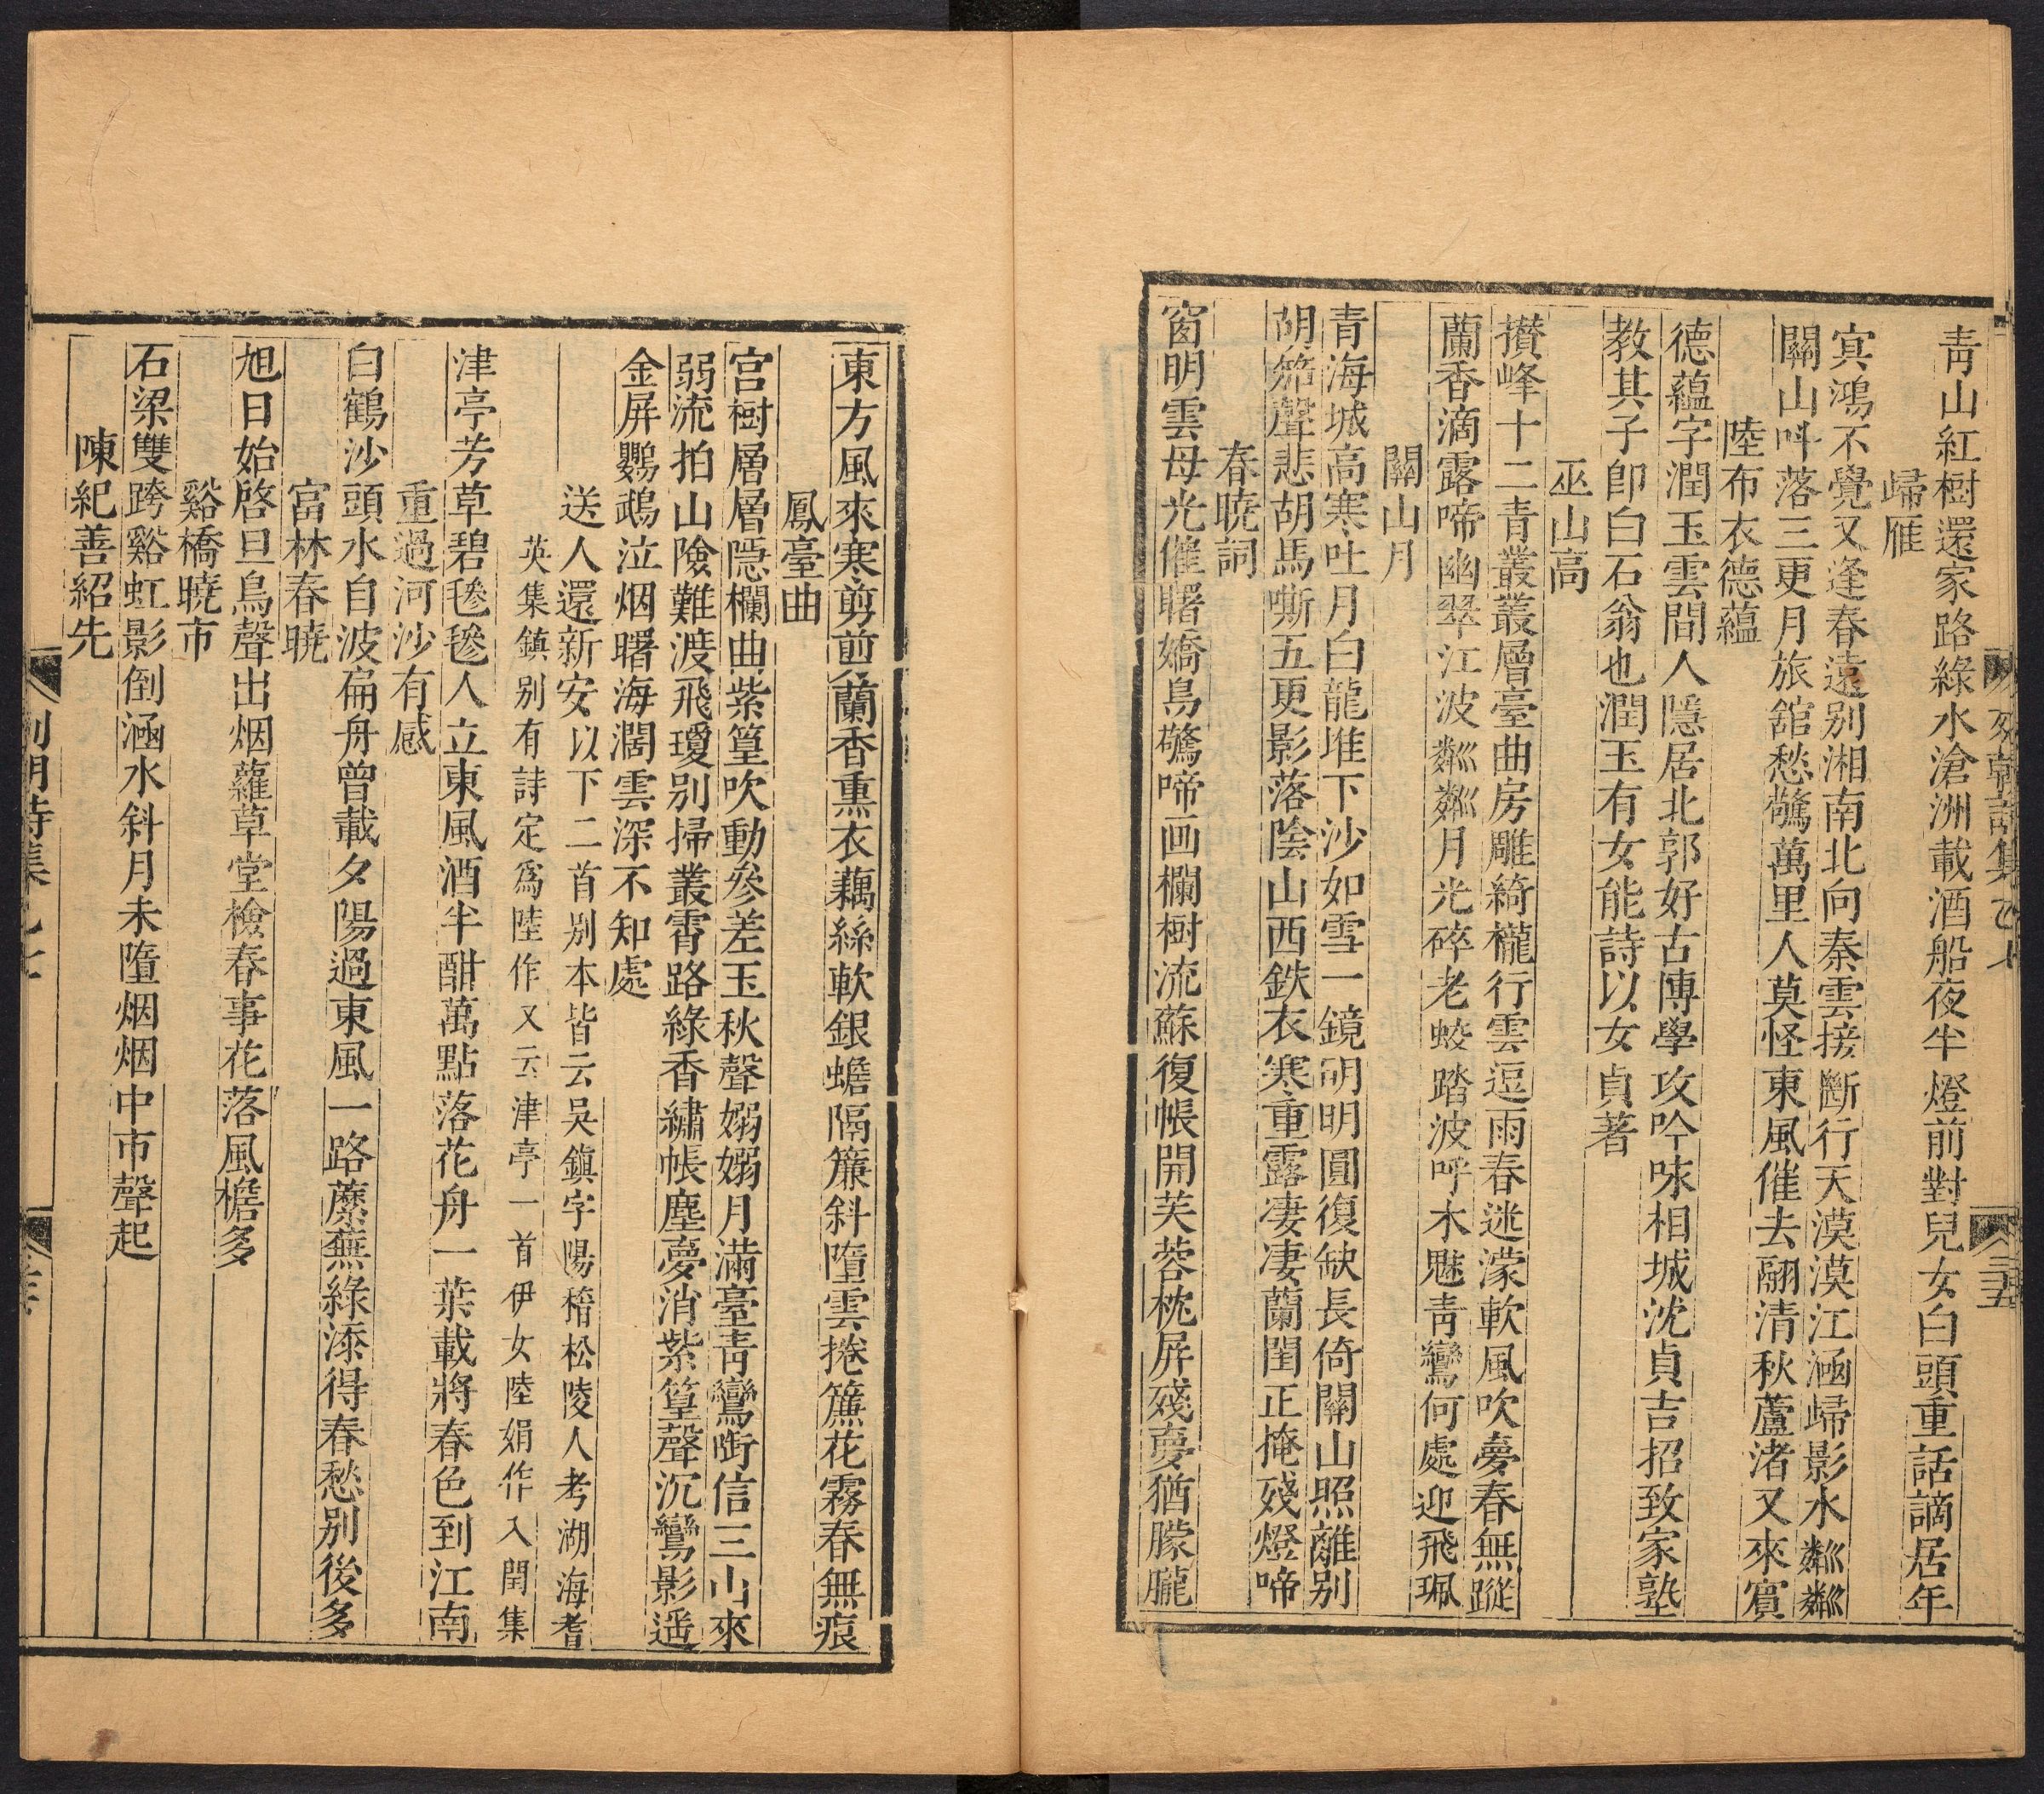 青山紅樹還家路綠水滄洲載酒船夜半燈前對兒女白頭重話謫居年
歸雁
冥鴻不覺又逢春遠別湘南北向秦雲接斷行天漠漠江涵歸影水粼粼
關山呌落三更月旅舘愁驚萬里人莫怪東風催去翮清秋蘆渚又來賓
陸布衣德蘊
德蘊字潤玉雲間人隱居北郭好古博學攻吟咏相城沈貞吉招致家塾
教其子卽白石翁也潤玉有女能詩以女貞著
巫山高
攅峰十二青叢叢層臺曲房雕綺櫳行雲逗雨春迷濛軟風吹夢春無蹤
蘭香滴露啼幽翠江波粼粼月光碎老蛟踏波呼木魅青鸞何處迎飛珮
關山月
青海城高寒吐月白龍堆下沙如雪一鏡明明圓復缺長倚關山照離别
胡笳聲悲胡馬嘶五更影落陰山西鉄衣寒重露凄凄蘭閨正掩殘燈啼
春曉詞
窗明雲母光催曙嬌鳥驚啼画欄樹流蘇復帳開芙蓉枕屏殘夢猶朦朧
東方風來寒剪剪蘭香熏衣藕絲軟銀蟾隔簾斜墮雲捲簾花霧春無痕
鳳臺曲
宫樹層層隱欄曲紫篁吹動參差玉秋聲嫋嫋月滿臺青鸞銜信三山來
弱流拍山險難渡飛瓊别掃叢霄路綠香繡帳塵夢消紫篁聲沉鸞影遥
金屏鸚鵡泣烟曙海濶雲深不知處
送人還新安以下二首别本皆云吳鎮字陽稽松陵人考湖海耆
英集鎮别有詩定爲陸作又云津亭一首伊女陸娟作入閏集
津亭芳草碧毿毿人立東風酒半酣萬點落花舟一葉載將春色到江南
重過河沙有感
白鶴沙頭水自波扁舟曾載夕陽過東風一路蘼蕪綠添得春愁别後多
富林春曉
旭日始啓旦鳥聲出烟蘿草堂檢春事花落風檐多
谿橋曉市
石梁雙跨谿虹影倒涵水斜月未墮烟烟中市聲起
陳紀善紹先